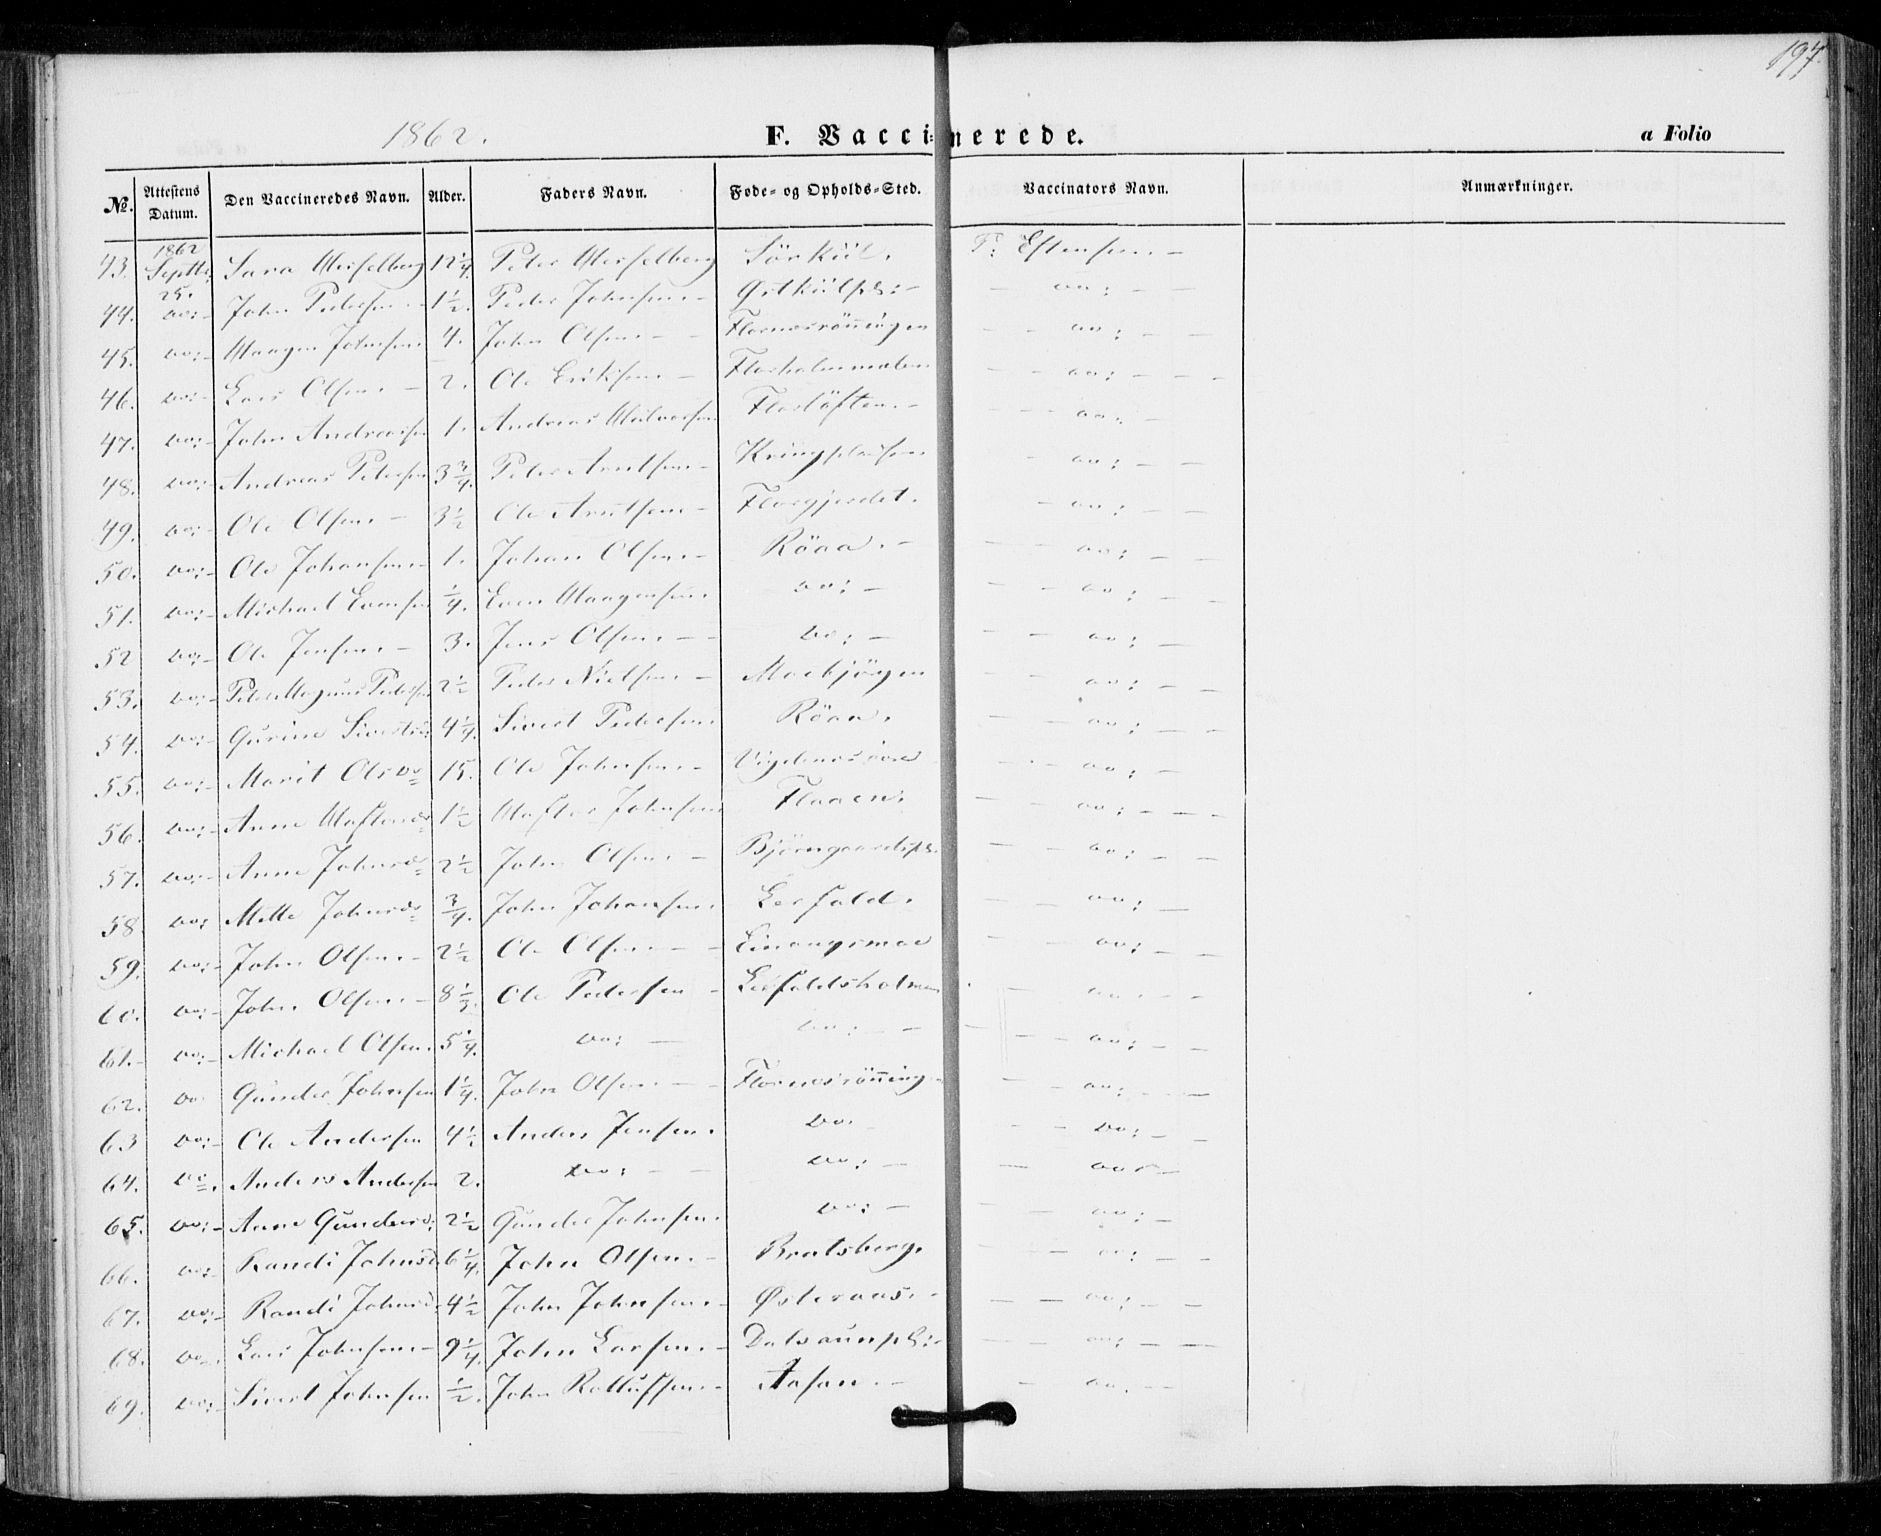 197.
1862.
F. Vaccinerede.
a Folio
No. Attestens Datum. Den Vaccineredes Navn. Alder. Faders Navn. Føde- og Opholds-Sted. Vaccinators Navn. Anmærkninger.
43. 1862 Septbr 25. Sara Wesselberg 12 1/4. Peter Wesselberg Sörkiil. T: Estensen. -
44. do: - John Pedersen - 1 1/2. Peder Johnsen. - Østkiilpl: - - do: - -
45. do: - Waagen Johnsen 4. John Olsen. - - Flornesrönningen - - do: - -
46. do: - Lars Olsen. - 2. Ole Eriksen. - - - do: - - -
47. do: - John Andreassen 1. Andreas Flosløften. - - - do: -
48. do: - Andreas Petersen 3 3/4. Peter Arntsen. - - do: - -
49. do: - Ole Olsen. - 3 1/2 Ole Arntsen. - Florgjerdet. - do: - -
50. do: - Ole Johansen. - 1. Johan Olsen. - Röaa. - - - do: - -
51. do: - Michael Evensen 1/4. Even Waagensen. do: - - do: - -
52 do: - Ole Jensen. - 3. Jens Olsen. - - do: - - - do: -
53. do: - Peter Magnus Pedersen 2 1/2 Peder Nielsen. - Moebjørgen - - do: - -
54. do: - Gurine Sivertsd: 4 1/4. Sivert Pedersen. Röaa. - - do: - -
55. do: - Marit Olsd: 15. Ole Johnsen. - - - do: -
56. do: - Anne 1 1/2 Johnsen Floaen. - - do: - - -
57. do: - Anne Johnsd: 2 1/2 John Olsen. - Björngaardspl. - - do: - -
58 do: Mette Johnsd: 3/4. John Johansen. Lerfald. - - do: -
59. do: - John Olsen. - 2 1/2 Ole Olsen - - Einangsmoe - - do: - -
60. do: - John Olsen. - 8 1/3. Ole Pedersen - Lerfaldsholmen - - do: - -
61. - do: - Michael Olsen. 5 1/4. do: - do: - - - - do: - -
62. do Gunder Johnsen 1 1/4. John Olsen. - - Flornesrönning - - - do: - -
63 do: - Ole Andersen 4 1/2 Anders Jensen. do. - - - do: - -
64. do. Anders Andersen 2. do: - - do: - - do: -
65. do: - Anne Gundersd: 2 1/2 Gunder Johnsen. do: - - - do: -
66. do: - Randi Johnsd. 6 1/4. John Olsen. - Bratsberg. - - do: - -
67. do: - Randi Johnsd: 4 1/2 John Johnsen. - Østeraas. - - - do: - -
68. do. Lars Johnsen. - 9 1/4. John Larsen. - Dalsaunpl: - - - do: - -
69. do: - Sivert Johnsen 1/2. John Rollufsen. - Aasan. - - do. -